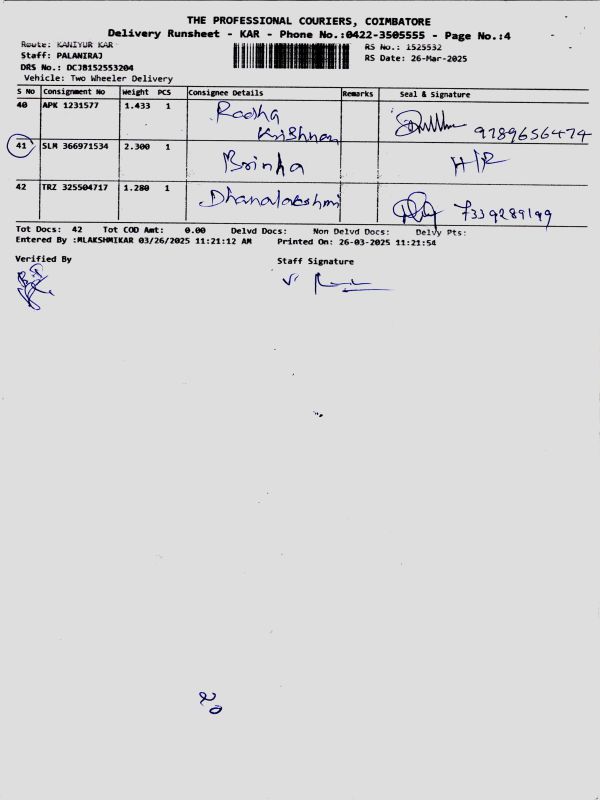 THE PROFESSIONAL COURIERS, COIMBATORE
Delivery Runsheet - KAR - Phone No.:0422-3505555 - Page No.:4
Route: KANIYUR KAR
RS No.: 1525532
Staff: PALANIRAJ
RS Date: 26-Mar-2025
DRS No.: DCJB152553204
Vehicle: Two Wheeler Delivery
S No Consignment No Weight PCS Consignee Details Remarks Seal & Signature
40 APK 1231577 1.433 1 Radha Krishnan 9789656474
41 SLM 366971534 2.300 1 Brinha H/R
42 TRZ 325504717 1.280 1 Dhanalakshmi 7339289199
Tot Docs: 42 Tot COD Amt: 0.00 Delvd Docs: Non Delvd Docs: Delvy Pts:
Entered By :MLAKSHMIKAR 03/26/2025 11:21:12 AM Printed On: 26-03-2025 11:21:54
Verified By
Staff Signature